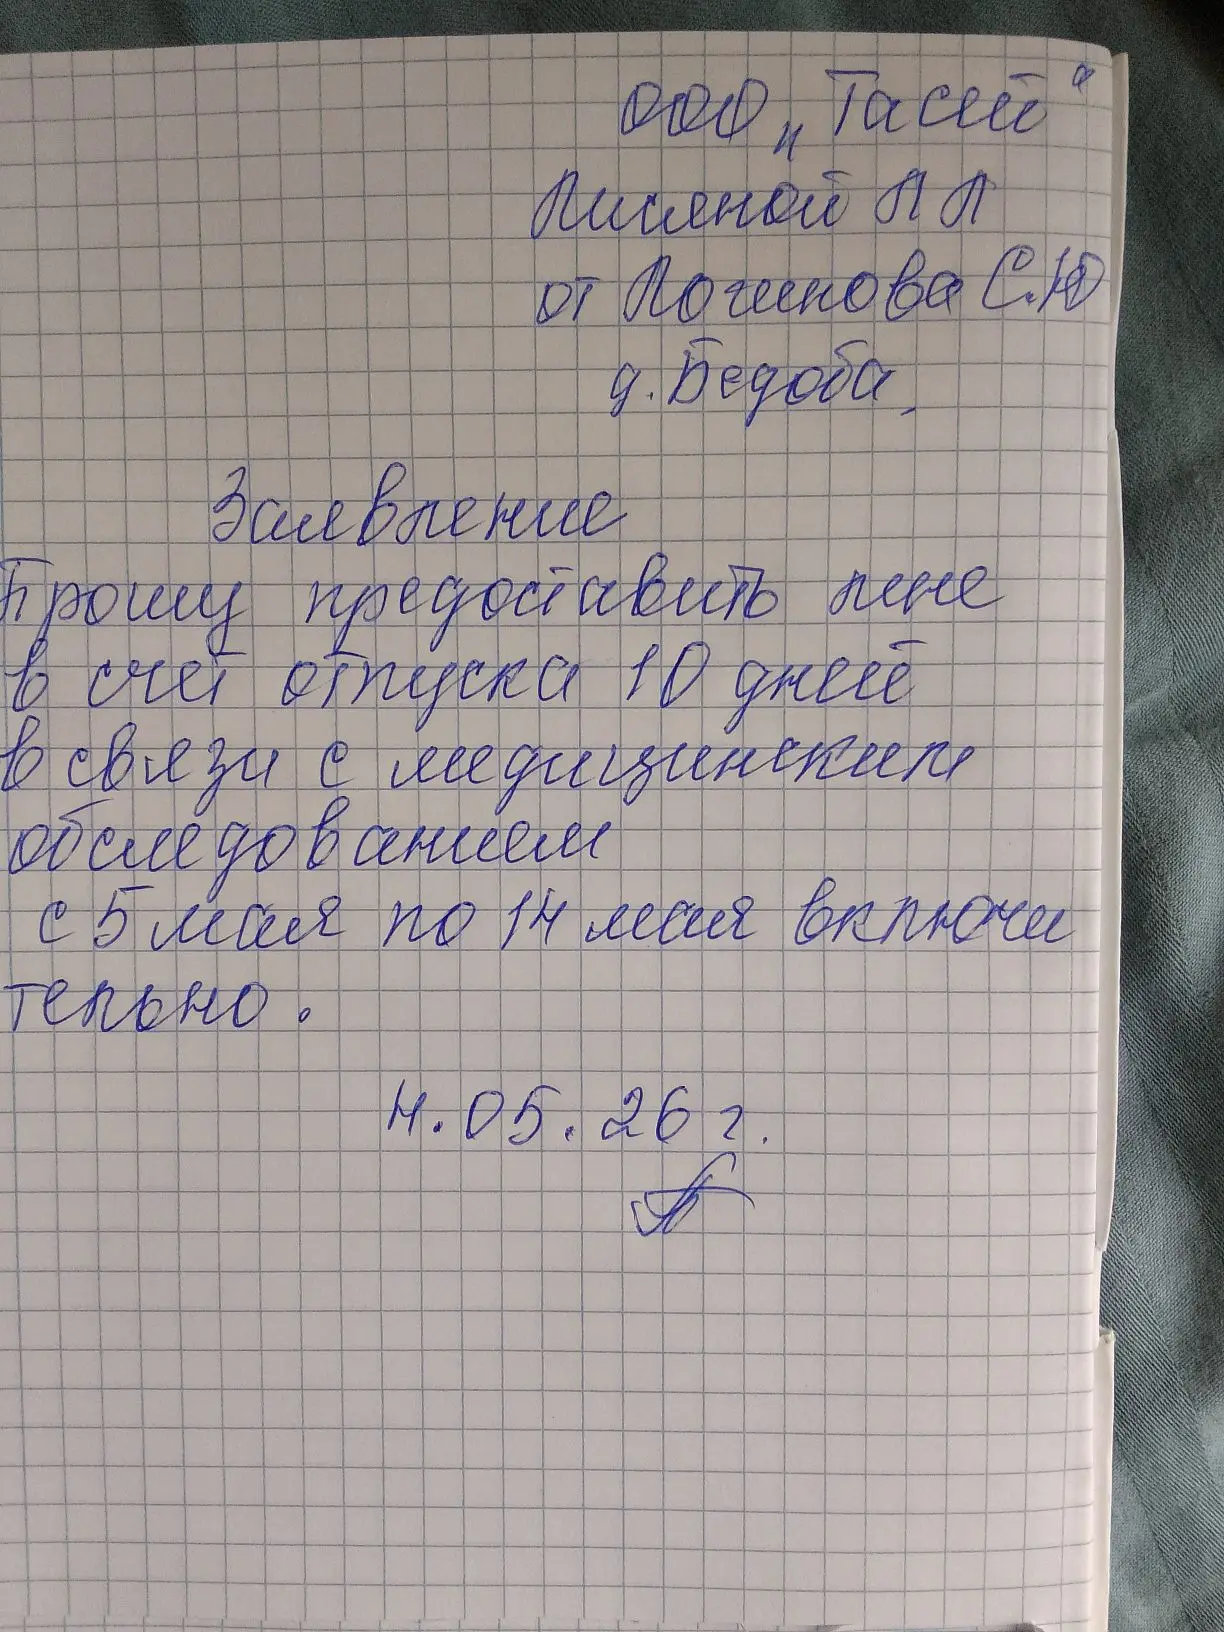 ООО „Тасей"
Лисяной Л Л
от Логинова С.Ю
д. Бедоба,
Заявление
Прошу предоставить мне
в счет отпуска 10 дней
в связи с медицинским
обследованием
с 5 мая по 14 мая включи
тельно.
4.05.26 г.